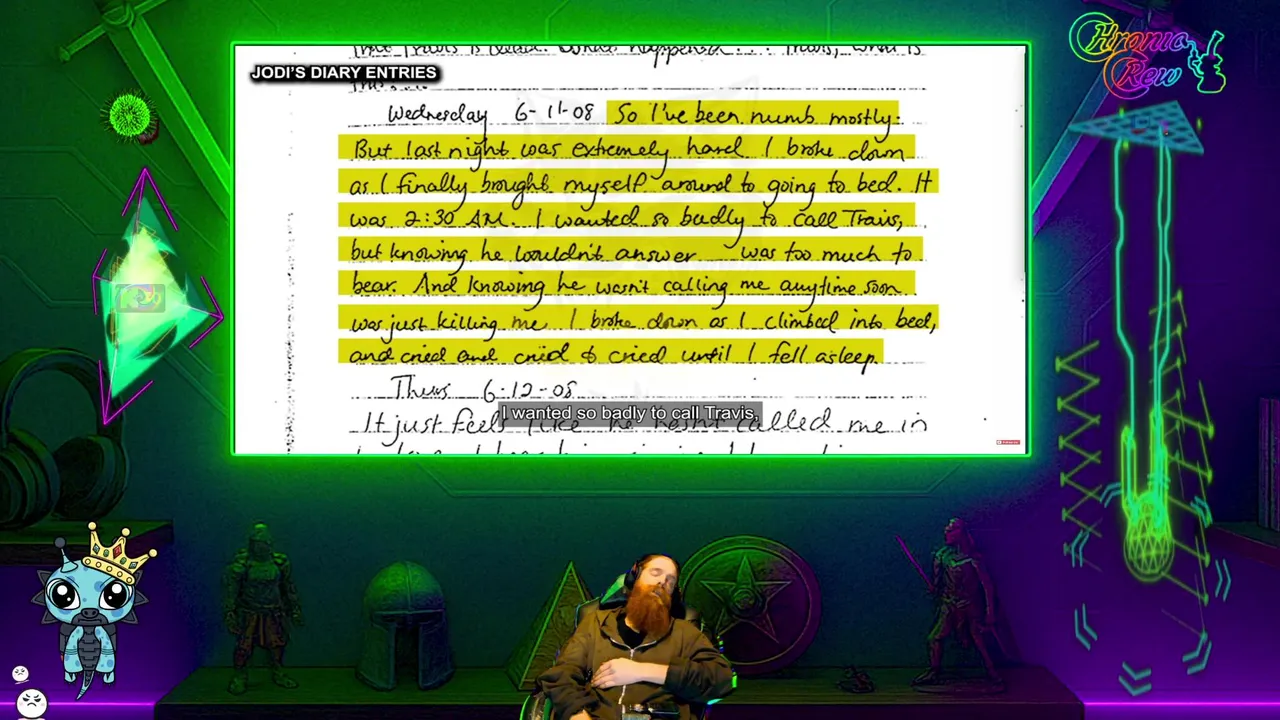 JODI'S DIARY ENTRIES
Wednesday 6-11-08 So I've been numb mostly.
But last night was extremely hard. I broke down
as I finally brought myself around to going to bed. It
was 2:30 AM. I wanted so badly to call Travis,
but knowing he wouldn't answer was too much to
bear. And knowing he wasn't calling me anytime soon
was just killing me. I broke down as I climbed into bed,
and cried and cried & cried until I fell asleep.
Thurs 6-12-08
I wanted so badly to call Travis,
It just feels like he called me in
Chronic
Crew